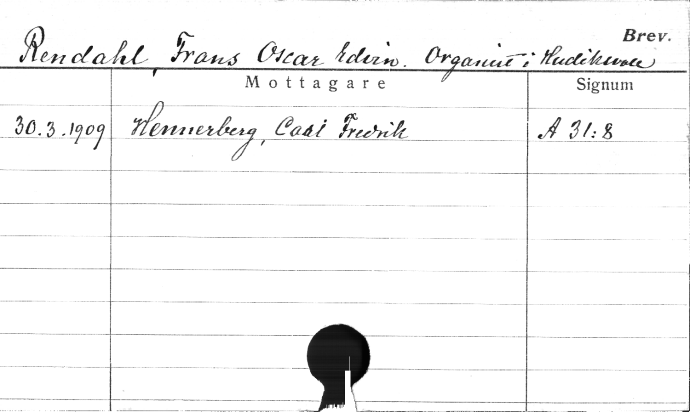 Brev.
Rendahl, Frans Oscar Edvin. Organist i Hudiksvall
Mottagare Signum
30.3.1909 Hennerberg, Carl Fredrik A 31:8